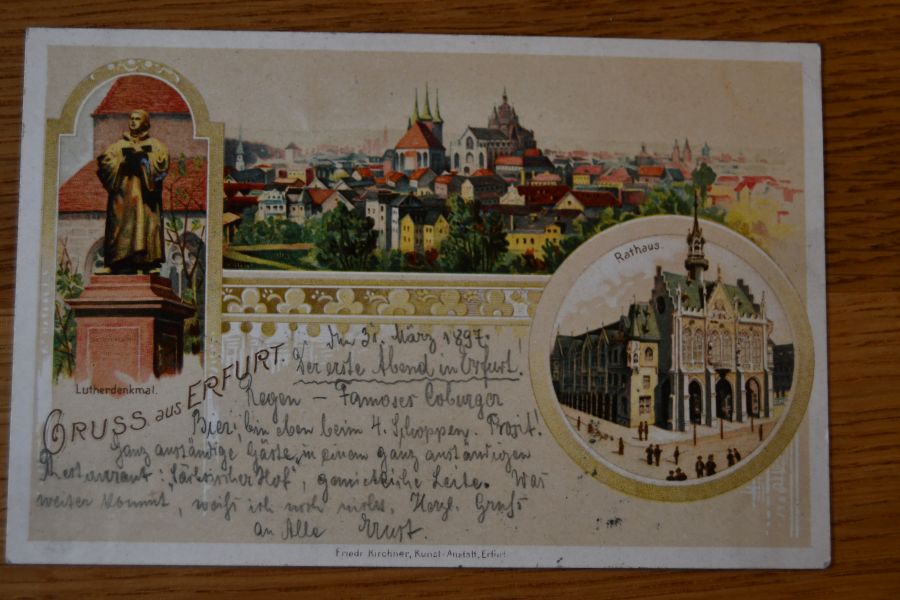 Rathaus.
Lutherdenkmal.
GRUSS aus ERFURT.
März 1897.
Der erste Abend in Erfurt.
Regen – Famoser Coburger
Bier: bin eben beim 4. Schoppen. Prosit!
Ganz anständige Gäste in einem ganz anständigen
Restaurant: Hof", gemütliche Leute. Was
weiter kommt, weiß ich noch nichts. Herzl. Gruß
an Alle Ernst.
Friedr. Kirchner, Kunst-Anstalt, Erfurt.